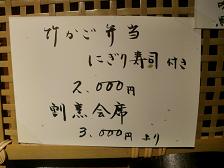 竹かご弁当
にぎり寿司付き
2.000円
割烹会席
3.000円より